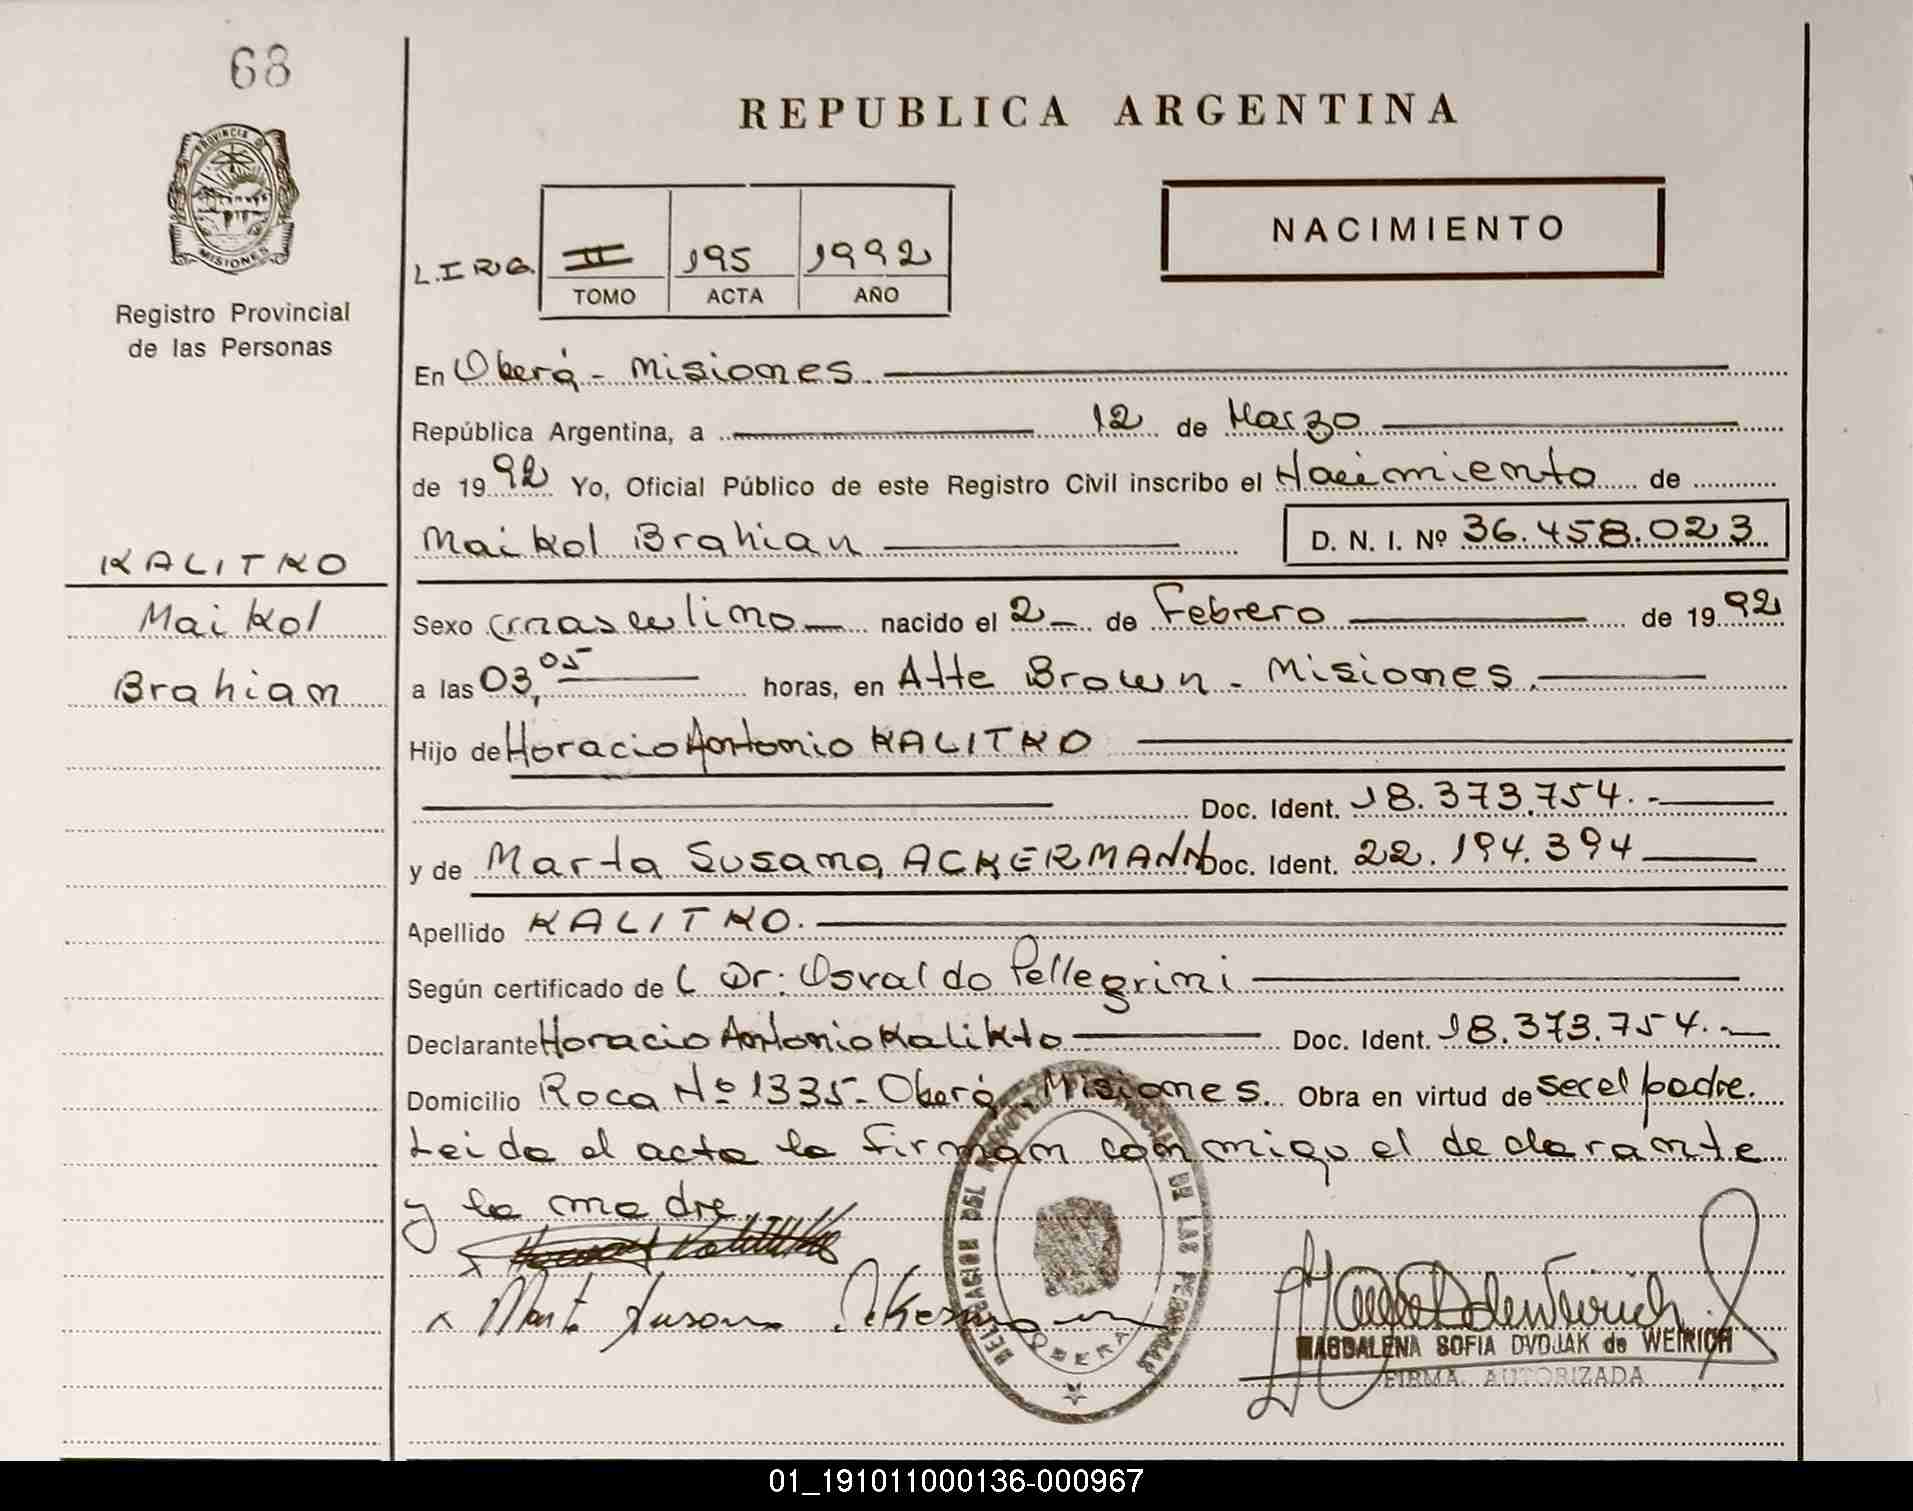 68
PROVINCIA DE
MISIONES
Registro Provincial
de las Personas
REPUBLICA ARGENTINA
NACIMIENTO
II 195 1992
TOMO ACTA AÑO
En Oberá - Misiones
República Argentina, a 12 de Marzo
de 1992 Yo, Oficial Público de este Registro Civil inscribo el Nacimiento de
Maikol Brahian D. N. I. Nº 36.458.023
KALITKO
Maikol
Brahian
Sexo masculino nacido el 2 de Febrero de 1992
a las 03,05 horas, en Alte Brown - Misiones.
Hijo de Horacio Antonio KALITKO
Doc. Ident. 18.373.754.-
y de Marta Susana ACKERMANN Doc. Ident. 22.194.394
Apellido KALITKO.
Según certificado de Dr: Osvaldo Pellegrini
Declarante Horacio Antonio Kalikto Doc. Ident. 18.373.754.-
Domicilio Roca Nº 1335- Oberá - Misiones. Obra en virtud de ser el padre.
Leida el acta la firman conmigo el declarante
y la madre.
x Marta Susana Ackermann
DELEGACION DEL REGISTRO PROVINCIAL DE LAS PERSONAS
OBERA
MAGDALENA SOFIA DVOJAK de WEIRICH
FIRMA AUTORIZADA
01_191011000136-000967